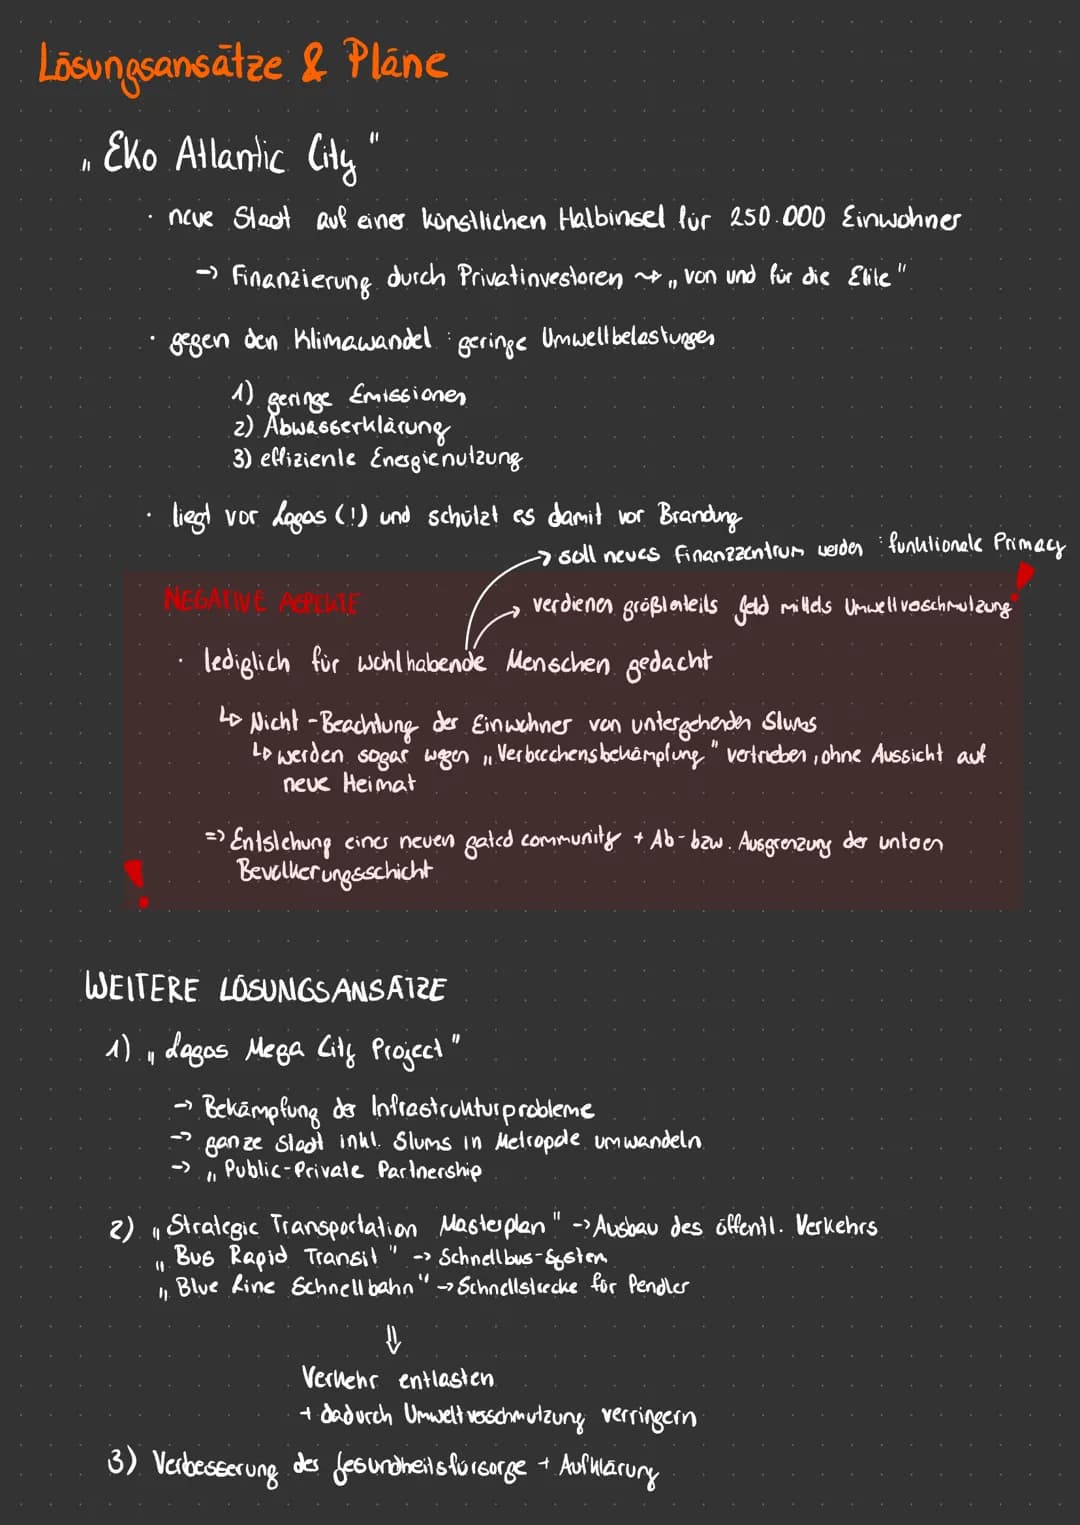 Lösungsansätze & Pläne
„Eko Atlantic City"
· neue Stadt auf einer künstlichen Halbinsel für 250.000 Einwohner
-> Finanzierung durch Privatinvestoren ⇝ „von und für die Elite"
· gegen den Klimawandel : geringe Umweltbelastungen
1) geringe Emissionen
2) Abwasserklärung
3) effiziente Energienutzung
· liegt vor Lagos (!) und schützt es damit vor Brandung
-> soll neues Finanzzentrum werden : funktionale Primacy
NEGATIVE ASPEKTE
-> verdienen größtenteils Geld mittels Umweltverschmutzung !
· lediglich für wohlhabende Menschen gedacht
↳ Nicht-Beachtung der Einwohner von untergehenden Slums
↳ werden sogar wegen „Verbrechensbekämpfung" vertrieben, ohne Aussicht auf
neue Heimat
=> Entstehung einer neuen gated community + Ab- bzw. Ausgrenzung der unteren
Bevölkerungsschicht
!
WEITERE LÖSUNGSANSÄTZE
1) „Lagos Mega City Project"
-> Bekämpfung der Infrastrukturprobleme
-> ganze Stadt inkl. Slums in Metropole umwandeln
-> „Public-Private Partnership
2) „Strategic Transportation Masterplan" -> Ausbau des öffentl. Verkehrs
„Bus Rapid Transit" -> Schnellbus-System
„Blue Line Schnellbahn" -> Schnellstrecke für Pendler
⇓
Verkehr entlasten
+ dadurch Umweltverschmutzung verringern
3) Verbesserung der Gesundheitsfürsorge + Aufklärung